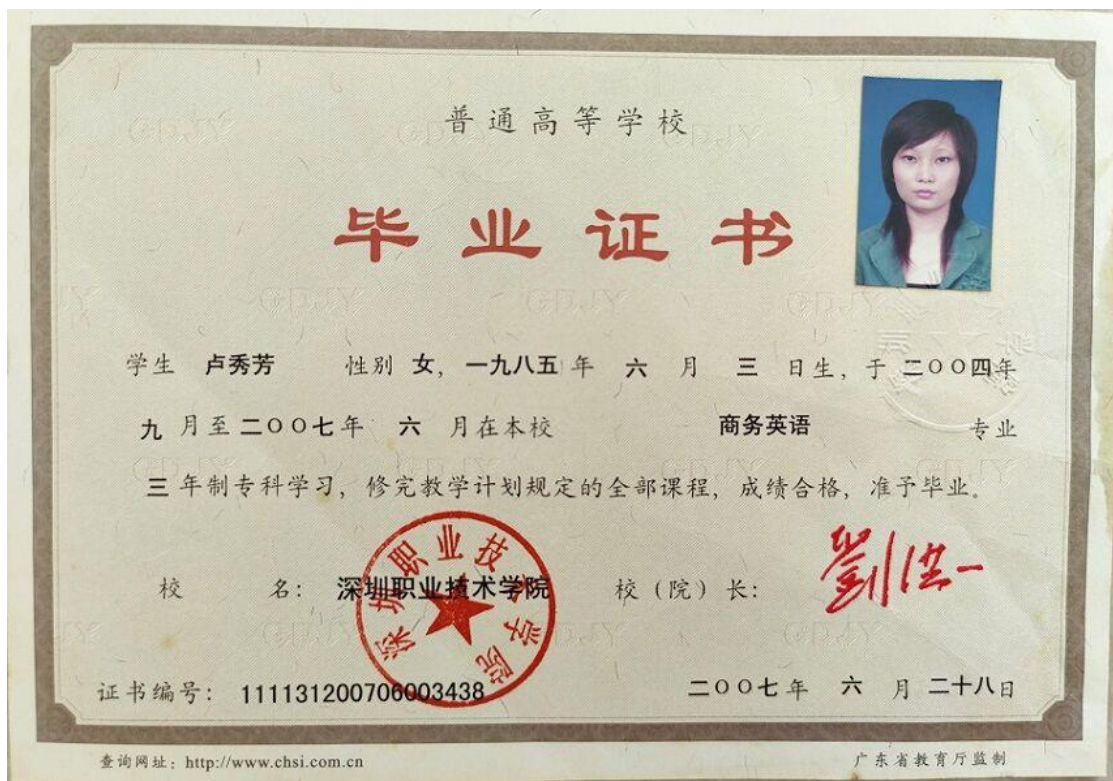 普通高等学校
毕业证书
学生 卢秀芳 性别 女, 一九八五年 六 月 三 日生, 于 二〇〇四年
九 月至 二〇〇七年 六 月在本校 商务英语 专业
三 年制专科学习, 修完教学计划规定的全部课程, 成绩合格, 准予毕业。
深圳职业技术学院
校 名: 深圳职业技术学院 校（院）长: 劉洪一
证书编号: 111131200706003438 二〇〇七年 六 月 二十八日
查询网址: http://www.chsi.com.cn 广东省教育厅监制